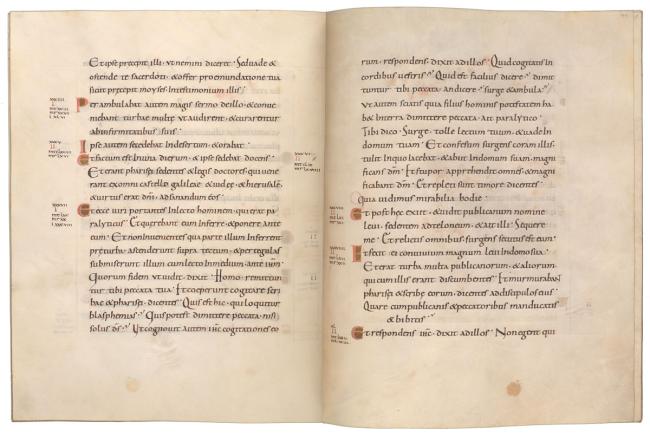 Et ipse precepit illi · ut nemini diceret · Sed uade &
ostende te sacerdoti · & offer pro emundatione tua
sicut precepit moyses · In testimonium illis ·
Per ambulabat autem magis sermo de illo · & conue
niebant turbae multę ut audirent · & curarentur
ab infirmitatibus suis ·
Ipse autem secedebat In desertum · & orabat ·
Et factum est In una dierum · & ipse sedebat docens ·
Et erant pharisei sedentes & legis doctores qui uene
rant ex omni castello galileae & iudęę · & hierusalē ·
& uirtus erat dn̄i · ad sanandum eos ·
Et ecce uiri portantes In lecto hominem · qui erat pa
ralyticus · Et querebant eum Inferre · & ponere ante
eum · Et non Inuenientes qua parte illum Inferrent
prę turba · ascenderunt supra tectum · & per tegulas
submiserunt illum cum lecto In medium · ante ih̄m ·
Quorum fidem ut uidit · dixit · Homo · remittun
tur tibi peccata tua · Et coeperunt cogitare scri
bae & pharisei · dicentes · Quis est hic · qui loquitur
blasphemias · Quis potest dimittere peccata · nisi
solus ds̄ · Ut cognouit autem ih̄c cogitationes eo
rum · respondens · dixit ad illos · Quid cogitatis In
cordibus uestris · Quid est facilius dicere · dimit
tuntur tibi peccata · an dicere · surge & ambula ·
Ut autem sciatis quia filius hominis potestatem ha
b& In terra dimittere peccata · ait paralytico ·
Tibi dico · Surge · tolle lectum tuum · & uade In
domum tuam · Et confestim surgens coram illis ·
tulit In quo iacebat · & abiit In domum suam · magni
ficans dm̄ · Et stupor apprehendit omnes · & mag
ficabant dm̄ · Et repleti sunt timore dicentes ·
Quia uidimus mirabilia hodie ·
Et post hęc exiit · & uidit publicanum nomine
leui · sedentem ad teloneum · & ait illi · Sequere
me · Et relictis omnibus surgens secutus est eum ·
Et fecit ei conuiuium magnum leui In domo sua ·
Et erat turba multa publicanorum · & aliorum ·
qui cum illis erant discumbentes · Et murmurabant
pharisei & scribę eorum · dicentes ad discipulos eius ·
Quare cum publicanis & peccatoribus manducatis
& bibitis ·
Et respondens ih̄c · dixit ad illos · Non egent qui